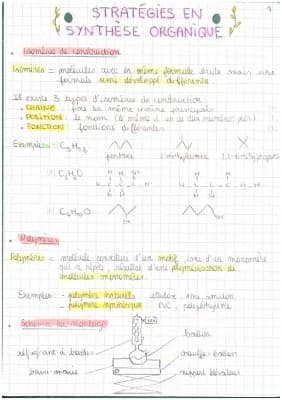 STRATÉGIES EN
SYNTHÈSE ORGANIQUE
1
• Isomères de constitution
Isomères = molécules avec la même formule brute mais une
formule semi développé différente.
Il existe 3 types d'isomères de constitution
• CHAINE : pas la même chaîne principale
• POSITION : le nom (le même à un ou des numéros près)
• FONCTION : fonctions différentes
Exemples : C₅H₁₂
pentane
2-méthylbutane
2,2-diméthylpropane
C₃H₆O
C₄H₁₀O
• Polymères
Polymères = molécule constituée d'un motif, issu d'un monomère
qui se répète, résultat d'une polymérisation de
molécules monomères.
Exemples : - polymère naturels : cellulose, soie, amidon
- polymère synthétique : PVC, polyéthylène
• Schéma de montage
réfrigérant à boules
ballon
chauffe-ballon
support élévateur